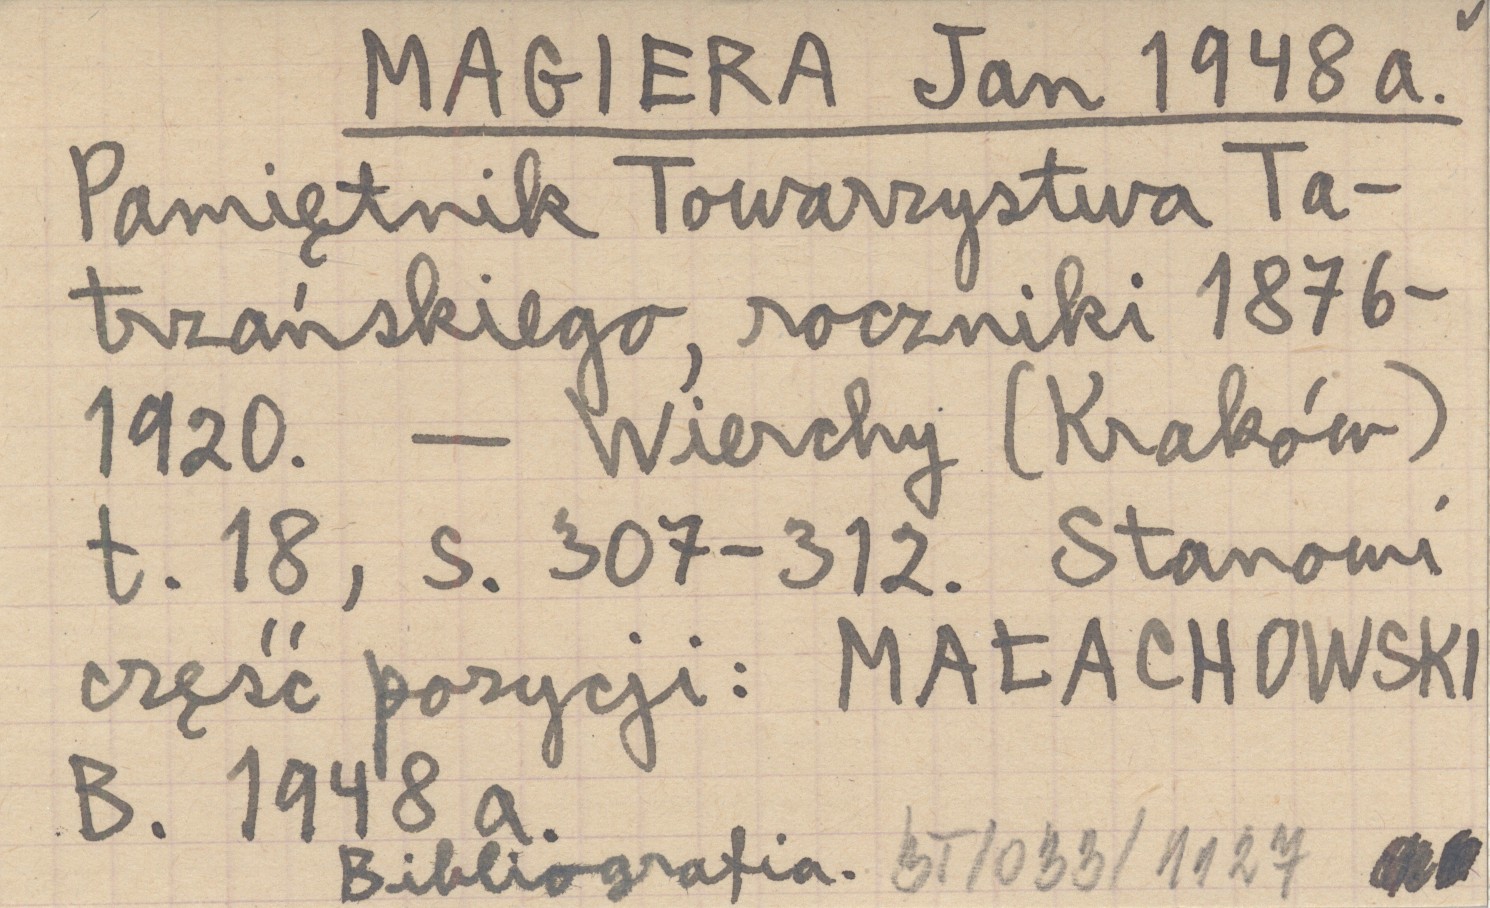 MAGIERA Jan 1948 a.
Pamiętnik Towarzystwa Ta-
trzańskiego, roczniki 1876-
1920. — Wierchy (Kraków)
t. 18, s. 307-312. Stanowi
część pozycji: MAŁACHOWSKI
B. 1948 a.
Bibliografia. /033/1127